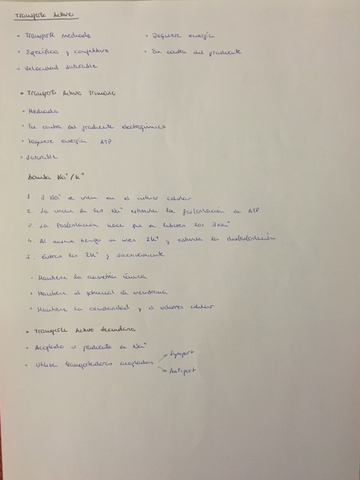 Transporte Activo
- Transporte mediado
- Requiere energía
- Específico y competitivo
- En contra del gradiente
- Velocidad saturable
• Transport Activo Primario
- Mediado
- En contra del gradiente electroquímico
- Requiere energía ATP
- Saturable
Bomba Na⁺/K⁺
1. 3 Na⁺ se unen en el interior celular
2. La unión de los Na⁺ estimula la fosforilación de ATP
3. La fosforilación hace que se liberen los 3 Na⁺
4. Al mismo tiempo se unen 2K⁺ y estimula la desfosforilación
5. libera los 2K⁺ y
- Mantiene la iónica
- Mantiene el potencial de membrana
- Mantiene la osmolaridad y el volumen celular
• Transporte Activo Secundario
- Acoplado al gradiente de Na⁺
- Utiliza transportadores acoplados
Symport
Antiport